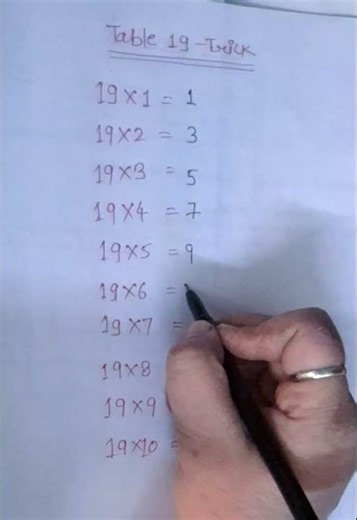 Table 19-Trick
19×1 = 1
19×2 = 3
19×3 = 5
19×4 = 7
19×5 = 9
19×6 =
19×7 =
19×8
19×9
19×10 =